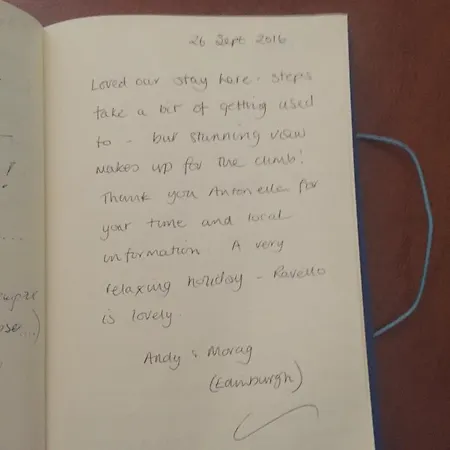 26 Sept 2016
!
Loved our stay here. steps
take a bit of getting used
to - but stunning view
makes up for the climb!
Thank you Antonella for
your time and local
information. A very
relaxing holiday - Ravello
is lovely.
Andy & Morag
(Edinburgh)